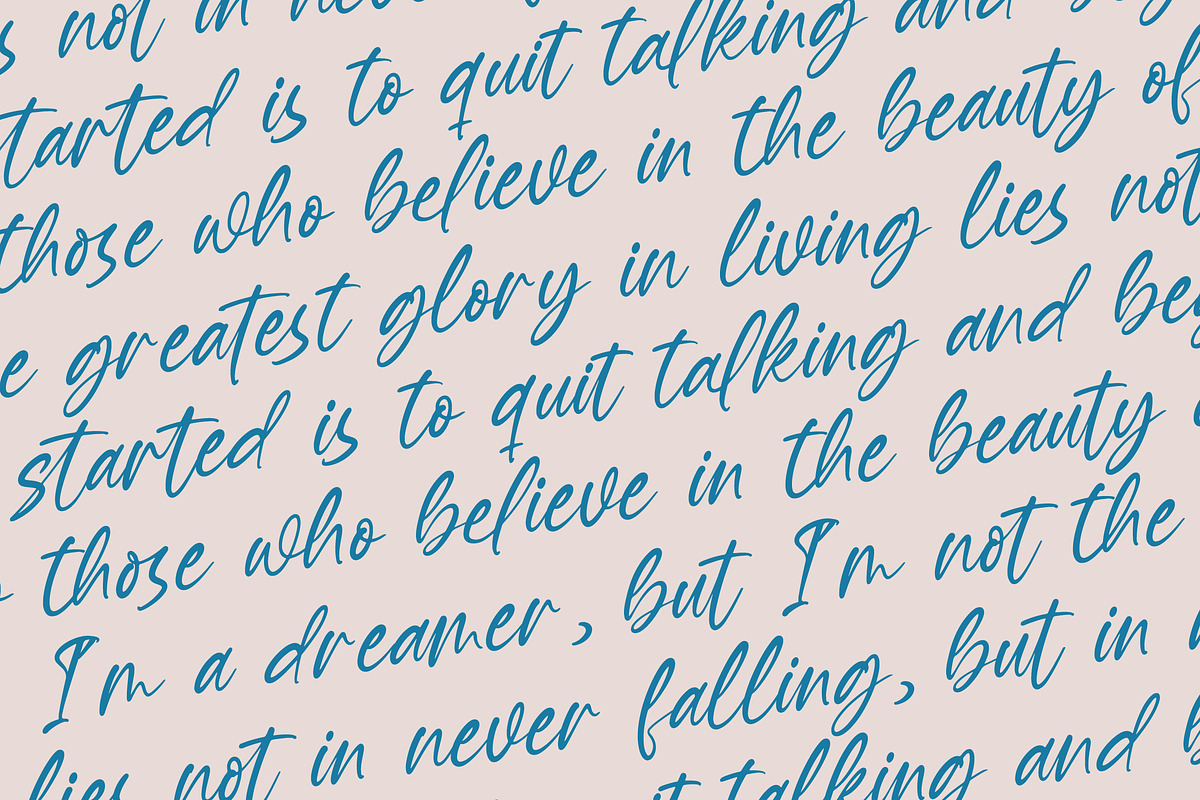 s not in never
started is to quit talking and
those who believe in the beauty of
e greatest glory in living lies not
started is to quit talking and be
those who believe in the beauty
I'm a dreamer, but I'm not the
lies not in never falling, but in
talking and b